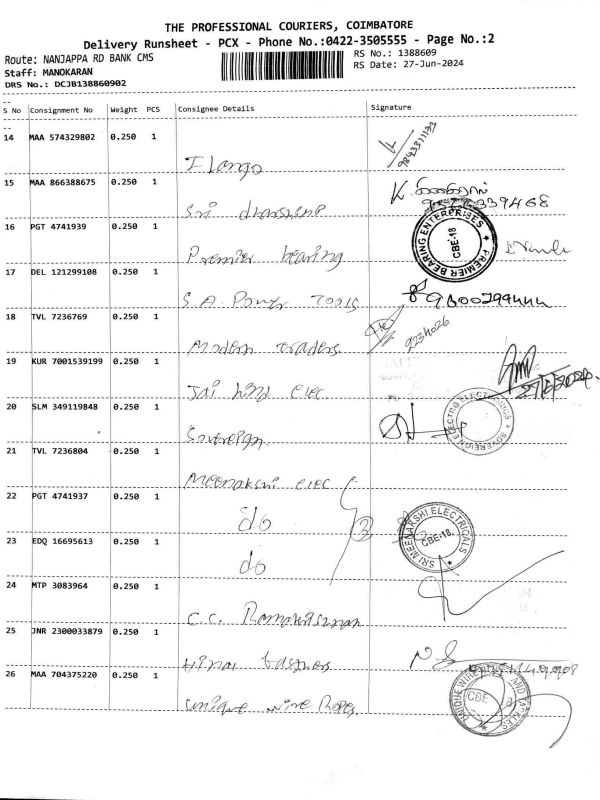 THE PROFESSIONAL COURIERS, COIMBATORE
Delivery Runsheet - PCX - Phone No.:0422-3505555 - Page No.:2
Route: NANJAPPA RD BANK CMS
RS No.: 1388609
Staff: MANOKARAN
RS Date: 27-Jun-2024
DRS No.: DCJB138860902
S No Consignment No Weight PCS Consignee Details Signature
14 MAA 574329802 0.250 1
Ilango
15 MAA 866388675 0.250 1
Sri
16 PGT 4741939 0.250 1
Premier bearing
PREMIER BEARING ENTERPRISES
CBE-18
17 DEL 121299108 0.250 1
S.A. Power Tools
18 TVL 7236769 0.250 1
Modern traders
19 KUR 7001539199 0.250 1
Jai hind elec
20 SLM 349119848 0.250 1
Sovereign
SOVEREIGN ELECTRO ELECTRONICS
21 TVL 7236804 0.250 1
Meenakshi elec
22 PGT 4741937 0.250 1
do
3
SRI MEENAKSHI ELECTRICALS
CBE-18.
23 EDQ 16695613 0.250 1
do
24 MTP 3083964 0.250 1
C.C.
25 JNR 2300033879 0.250 1
26 MAA 704375220 0.250 1
unique wire Ropes
CBE